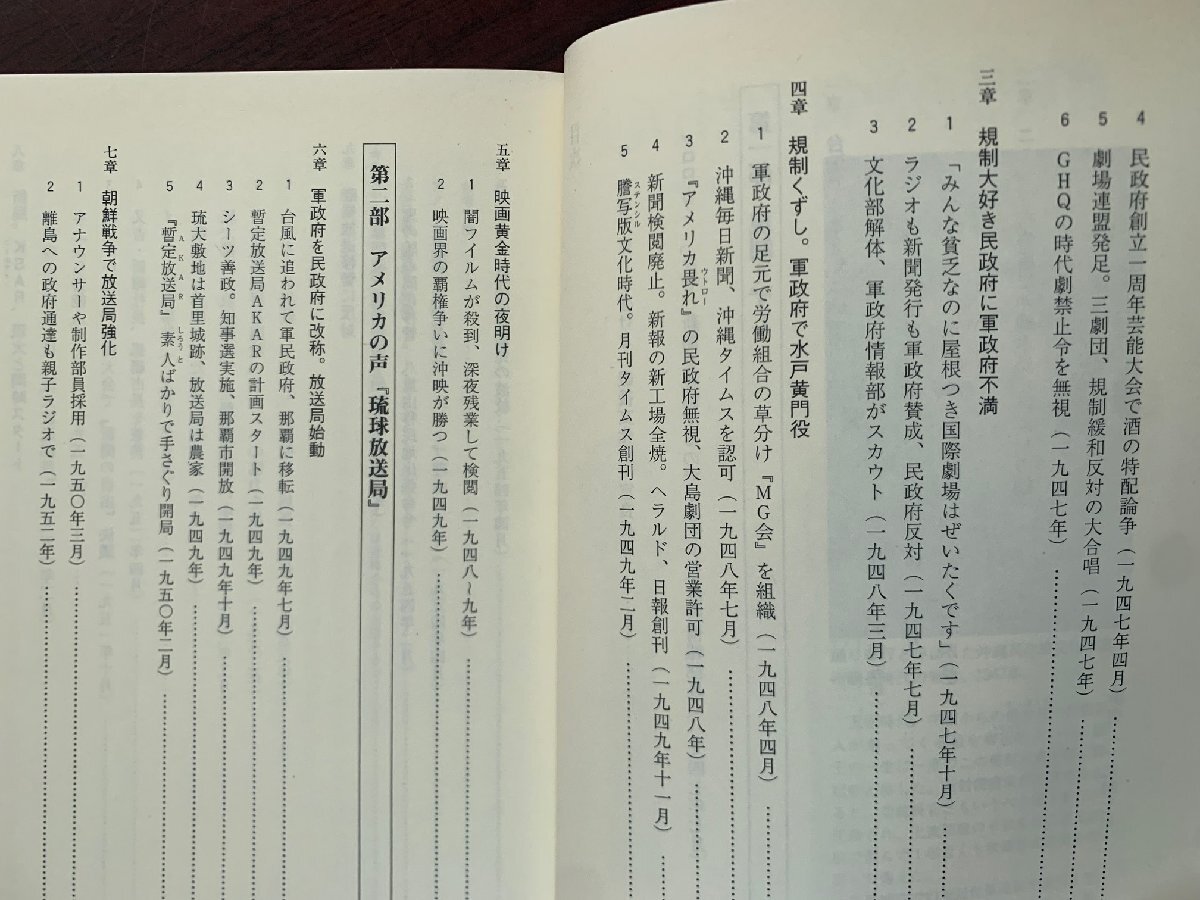 4 民政府創立一周年芸能大会で酒の特配論争(一九四七年四月)
5 劇場連盟発足。三劇団、規制緩和反対の大合唱(一九四七年)
6 GHQの時代劇禁止令を無視(一九四七年)
三章 規制大好き民政府に軍政府不満
1 「みんな貧乏なのに屋根つき国際劇場はぜいたくです」(一九四七年十月)
2 ラジオも新聞発行も軍政府賛成、民政府反対(一九四七年七月)
3 文化部解体、軍政府情報部がスカウト(一九四八年三月)
四章 規制くずし。軍政府で水戸黄門役
1 軍政府の足元で労働組合の草分け『MG会』を組織(一九四八年四月)
2 沖縄毎日新聞、沖縄タイムスを認可(一九四八年七月)
3 『アメリカ畏れ』の民政府無視、大島劇団の営業許可(一九四八年)
ウトロー
4 新聞検閲廃止。新報の新工場全焼。ヘラルド、日報創刊(一九四九年十一月)
5 謄写版文化時代。月刊タイムス創刊(一九四九年二月)
ステンシル
五章 映画黄金時代の夜明け
1 闇フイルムが殺到、深夜残業して検閲(一九四八~九年)
2 映画界の覇権争いに沖映が勝つ(一九四九年)
第二部 アメリカの声『琉球放送局』
六章 軍政府を民政府に改称。放送局始動
1 台風に追われて軍民政府、那覇に移転(一九四九年七月)
2 暫定放送局AKARの計画スタート(一九四九年)
3 シーツ善政。知事選実施、那覇市開放(一九四九年十月)
4 琉大敷地は首里城跡、放送局は農家(一九四九年)
5 『暫定放送局』素人ばかりで手さぐり開局(一九五〇年二月)
AKAR しろうと
七章 朝鮮戦争で放送局強化
1 アナウンサーや制作部員採用(一九五〇年三月)
2 離島への政府通達も親子ラジオで(一九五二年)